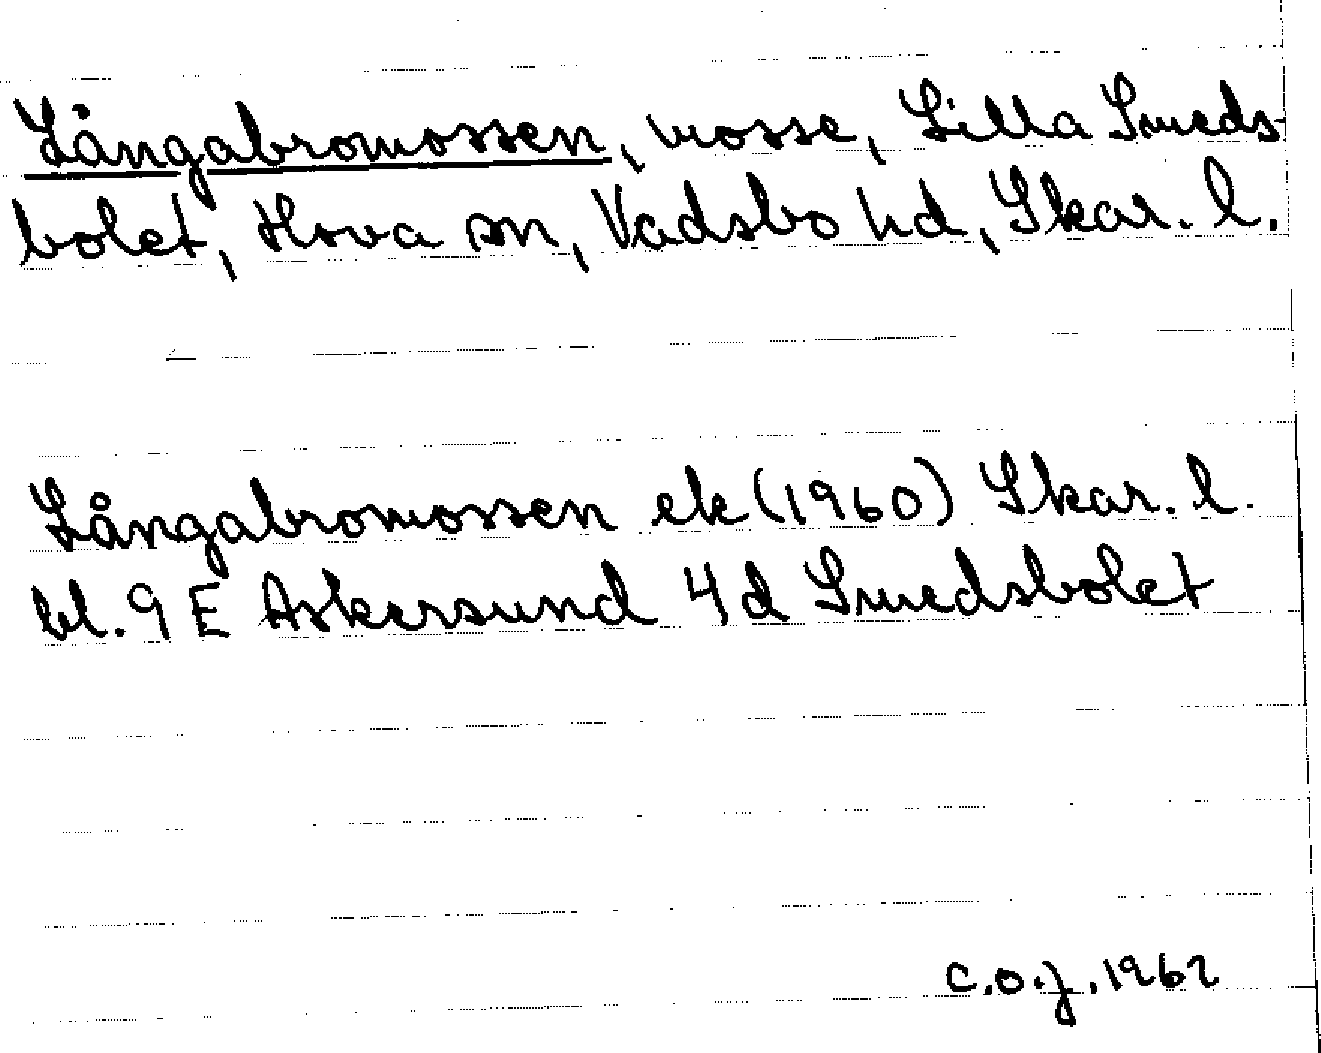 Långabromossen, mosse, Lilla Smeds-
bolet, Hova sn, Vadsbo hd, Skar. l.
Långabromossen ek (1960) Skar. l.
bl. 9 E Askersund 4 d Smedsbolet
C.O.J. 1962